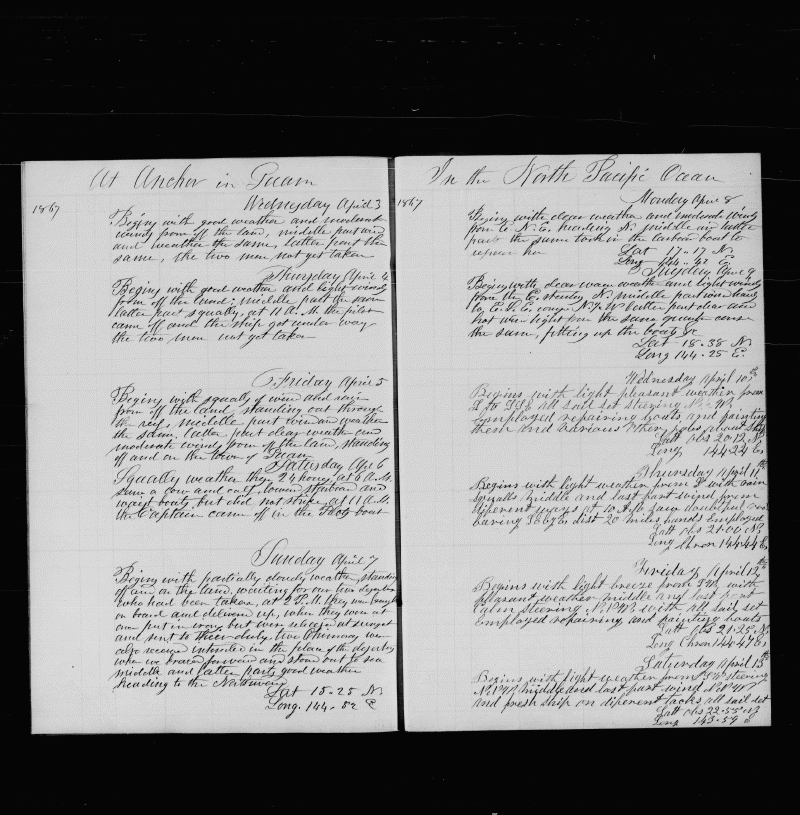 At Anchor in Guam
1867
Wednesday April 3
Begins with good weather and moderate
winds from off the land, middle part wind
and weather the same, latter part the
same, the two men not yet taken
Thursday April 4
Begins with good weather and light winds
from off the land; middle part the same
latter part squally, at 11 A.M. the pilot
came off and the ship got under way
the two men not yet taken
Friday April 5
Begins with squally of wind and rain
from off the land, standing out through
the reef, middle part wind and weather
the same, latter part clear weather and
moderate winds from off the land, standing
off and on the town of Guam
Saturday Apr 6
Squally weather these 24 hours, at 6 A.M.
saw a cow and calf, lowered starboard and
waist boats, but did not strike, at 11 A.M.
the Captain came off in the Pilots boat
Sunday April 7
Begins with partially cloudy weather, standing
off and on the land, waiting for our two deserters
who had been taken, at 2 P.M. they were brought
on board and delivered up, when they were at
once put in irons, but were released at sunset
and sent to their duty, two
also received in the place of the
when we braced forward and stood out to sea
middle and latter parts good weather
heading to the Northward
Lat 15.25 N
Long. 144.52 E
In the North Pacific Ocean
1867
Monday Apr 8
Begins with clear weather and moderate winds
from E. N. E. heading N. middle and latter
part the same took in the larboard boat to
repair her
Lat 17.17 N.
Long 144.42 E.
Tuesday Apr 9
Begins with clear warm weather and light winds
from the E. steering N. middle part wind
to E. S. E. course N. latter part clear and
hot with light the same course
the same, fitting up the boats &c
Lat 18.38 N
Long 144.25 E.
Wednesday April 10th
Begins with light pleasant weather from
S to SSE all sail set steering
Employed repairing boats and painting
them and various other jobs about ship
Latt obs 20.12 N
Long 144.24 E
Thursday April 11th
Begins with light weather from S with rain
squalls Middle and last part wind from
diferent ways at 10 A.M. saw
baring dist 20 miles hands Employed
Latt obs 21.00 N
Long Chron 144.44 E
Friday April 12th
Begins with light breeze from SW with
pleasant weather middle and last part
Calm steering with all sail set
Employed repairing and painting boats
Latt obs 21.25 N
Long Chron 144.47 E
Saturday April 13th
Begins with light weather from SW steering
middle and last part wind
and fresh ship on diferent tacks all sail set
Latt obs 22.55 N
Long 143.59